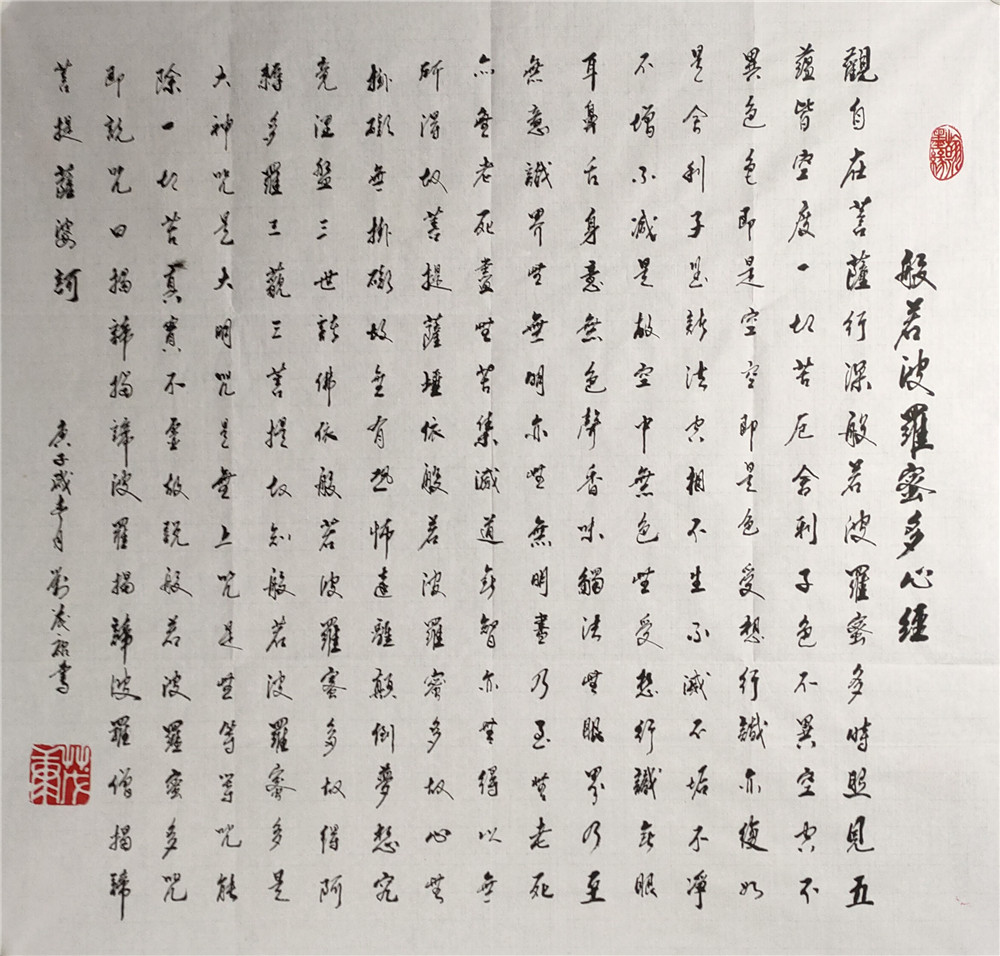 般若波羅蜜多心經
觀自在菩薩行深般若波羅蜜多時照見五
蘊皆空度一切苦厄舍利子色不異空空不
異色色即是空空即是色受想行識亦復如
是舍利子是諸法空相不生不滅不垢不淨
不增不減是故空中無色無受想行識無眼
耳鼻舌身意無色聲香味觸法無眼界乃至
無意識界無無明亦無無明盡乃至無老死
亦無老死盡無苦集滅道無智亦無得以無
所得故菩提薩埵依般若波羅蜜多故心無
掛礙無掛礙故無有恐怖遠離顛倒夢想究
竟涅盤三世諸佛依般若波羅蜜多故得阿
耨多羅三藐三菩提故知般若波羅蜜多是
大神咒是大明咒是無上咒是無等等咒能
除一切苦真實不虛故說般若波羅蜜多咒
即說咒曰揭諦揭諦波羅揭諦波羅僧揭諦
菩提薩婆訶
庚子歲冬月劉茂康書
茂康